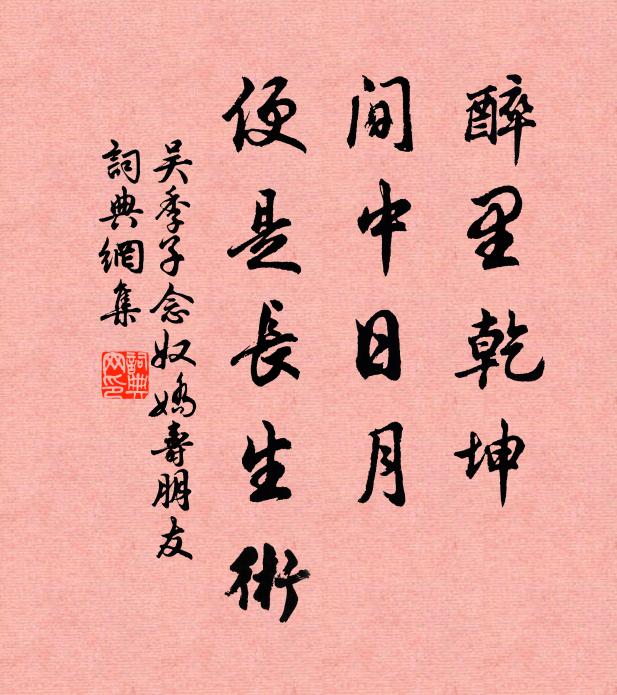 醉里乾坤
间中日月
便是長生術
吴季子念奴嬌壽朋友
詞典網集
詞典网印